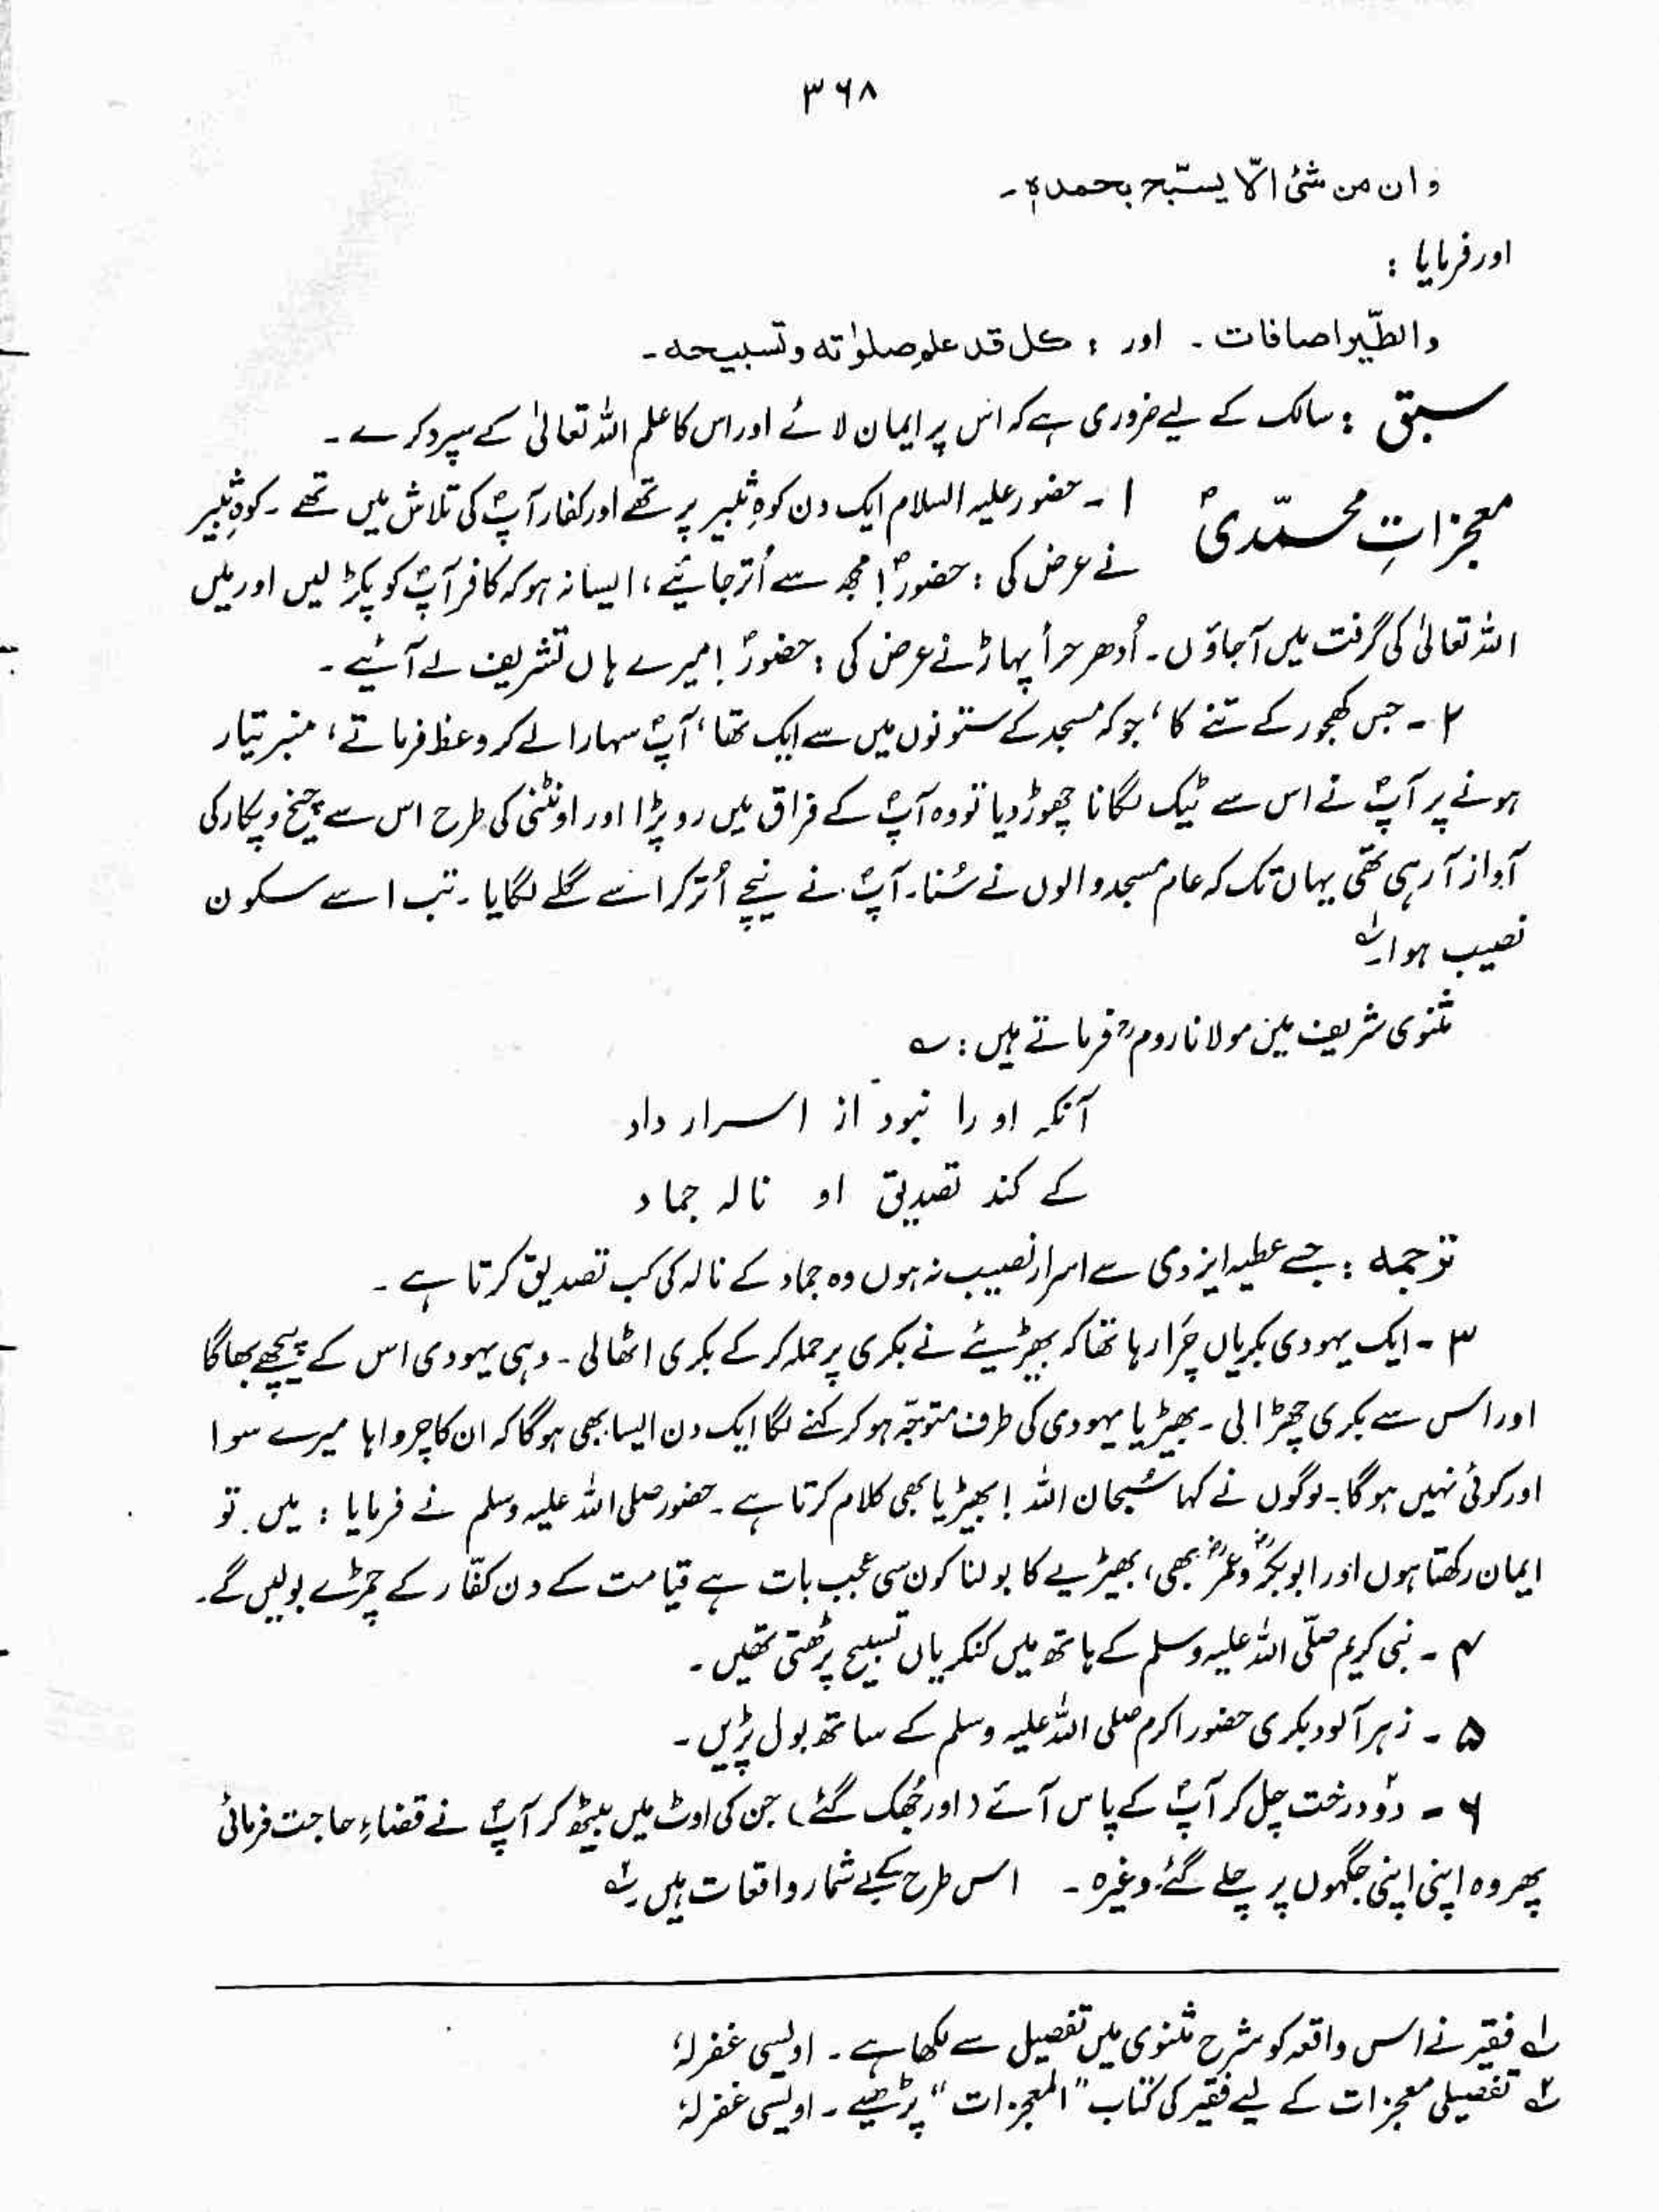 ۳۶۸
وان من شئ الّا یسبّح بحمدہٖ۔
اور فرمایا :
والطّیر اصافات ۔ اور : کل قد علم صلوٰتہ وتسبیحہ۔
سبق : سالک کے لیے ضروری ہے کہ اس پر ایمان لائے اور اس کا علم اللہ تعالیٰ کے سپرد کرے ۔
معجزاتِ محمّدیؐ ۱ ۔ حضور علیہ السلام ایک دن کوہِ ثبیر پر تھے اور کفار آپؐ کی تلاش میں تھے ۔ کوہِ ثبیر
نے عرض کی : حضورؐ! مجھ سے اُتر جائیے، ایسا نہ ہو کہ کافر آپؐ کو پکڑ لیں اور میں
اللہ تعالیٰ کی گرفت میں آجاؤں ۔ اُدھر حرأ پہاڑ نے عرض کی : حضورؐ! میرے ہاں تشریف لے آئیے ۔
۲ ۔ جس کھجور کے تنے کا، جو کہ مسجد کے ستونوں میں سے ایک تھا، آپؐ سہارا لے کر وعظ فرماتے، منبر تیار
ہونے پر آپؐ نے اس سے ٹیک لگانا چھوڑ دیا تو وہ آپؐ کے فراق میں رو پڑا اور اونٹنی کی طرح اس سے چیخ و پکار کی
آواز آ رہی تھی یہاں تک کہ عام مسجد والوں نے سُنا۔ آپؐ نے نیچے اُتر کر اسے گلے لگایا ۔ تب اسے سکون
نصیب ہوا۔ لہ
مثنوی شریف میں مولانا رومؒ فرماتے ہیں : ؎
آنکہ او را نبود از اسرار داد
کے کند تصدیق او نالہ جماد
ترجمہ : جسے عطیہ ایزدی سے اسرار نصیب نہ ہوں وہ جماد کے نالہ کی کب تصدیق کرتا ہے ۔
۳ ۔ ایک یہودی بکریاں چَرا رہا تھا کہ بھیڑیئے نے بکری پر حملہ کر کے بکری اٹھالی ۔ وہی یہودی اس کے پیچھے بھاگا
اور اس سے بکری چھڑالی ۔ بھیڑیا یہودی کی طرف متوجّہ ہو کر کہنے لگا ایک دن ایسا بھی ہوگا کہ ان کا چرواہا میرے سوا
اور کوئی نہیں ہوگا۔ لوگوں نے کہا سُبحان اللہ! بھیڑیا بھی کلام کرتا ہے ۔ حضور صلی اللہ علیہ وسلم نے فرمایا : میں تو
ایمان رکھتا ہوں اور ابوبکرؓ و عمرؓ بھی، بھیڑیے کا بولنا کون سی عجب بات ہے قیامت کے دن کفّار کے چمڑے بولیں گے۔
۴ ۔ نبی کریم صلّی اللہ علیہ وسلم کے ہاتھ میں کنکریاں تسبیح پڑھتی تھیں ۔
۵ ۔ زہر آلود بکری حضور اکرم صلی اللہ علیہ وسلم کے ساتھ بول پڑیں ۔
۶ ۔ دوؔ درخت چل کر آپؐ کے پاس آئے (اور جُھک گئے) جن کی اوٹ میں بیٹھ کر آپؐ نے قضاءِ حاجت فرمائی
پھر وہ اپنی اپنی جگہوں پر چلے گئے وغیرہ ۔ اس طرح کے بے شمار واقعات ہیں ۔ ۲ہ
لہ فقیر نے اس واقعہ کو شرح مثنوی میں تفصیل سے لکھا ہے ۔ اویسی غفرلہٗ
۲ہ تفصیلی معجزات کے لیے فقیر کی کتاب "المعجزات" پڑھیے ۔ اویسی غفرلہٗ